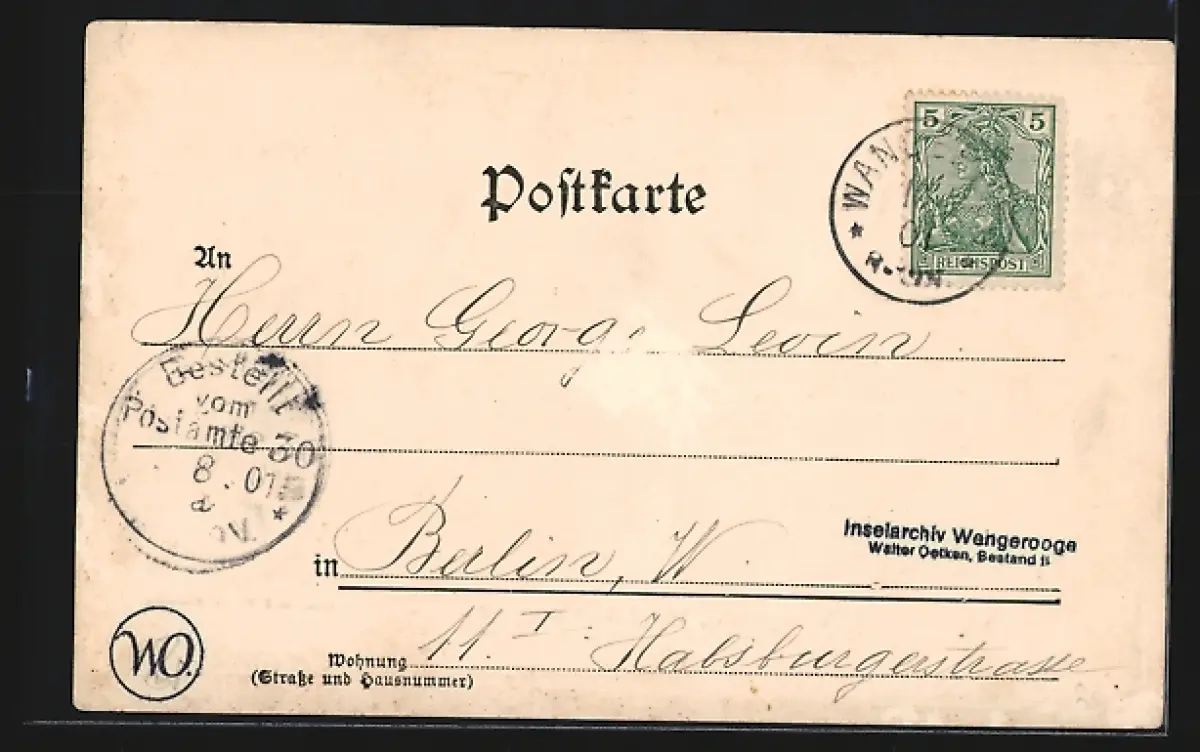 Postkarte
5 5
REICHSPOST
* WANG
01
8-9 N.
An
Herrn Georg Levin
Bestellt
vom
Postamte 30
8.01
N. *
in Berlin, W
Inselarchiv Wangerooge
Walter Oetken, Bestand
11 I. Habsburgerstrasse
Wohnung
(Straße und Hausnummer)
WO.